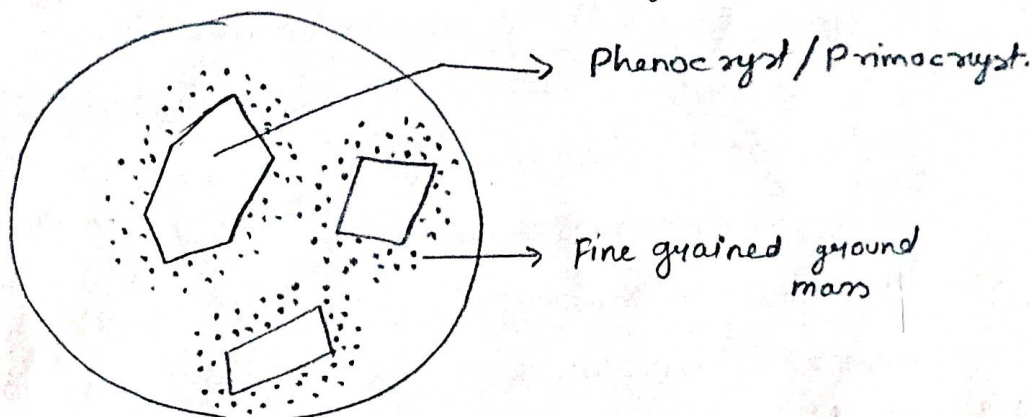 Phenocryst / Primocryst.
Fine grained ground
mass